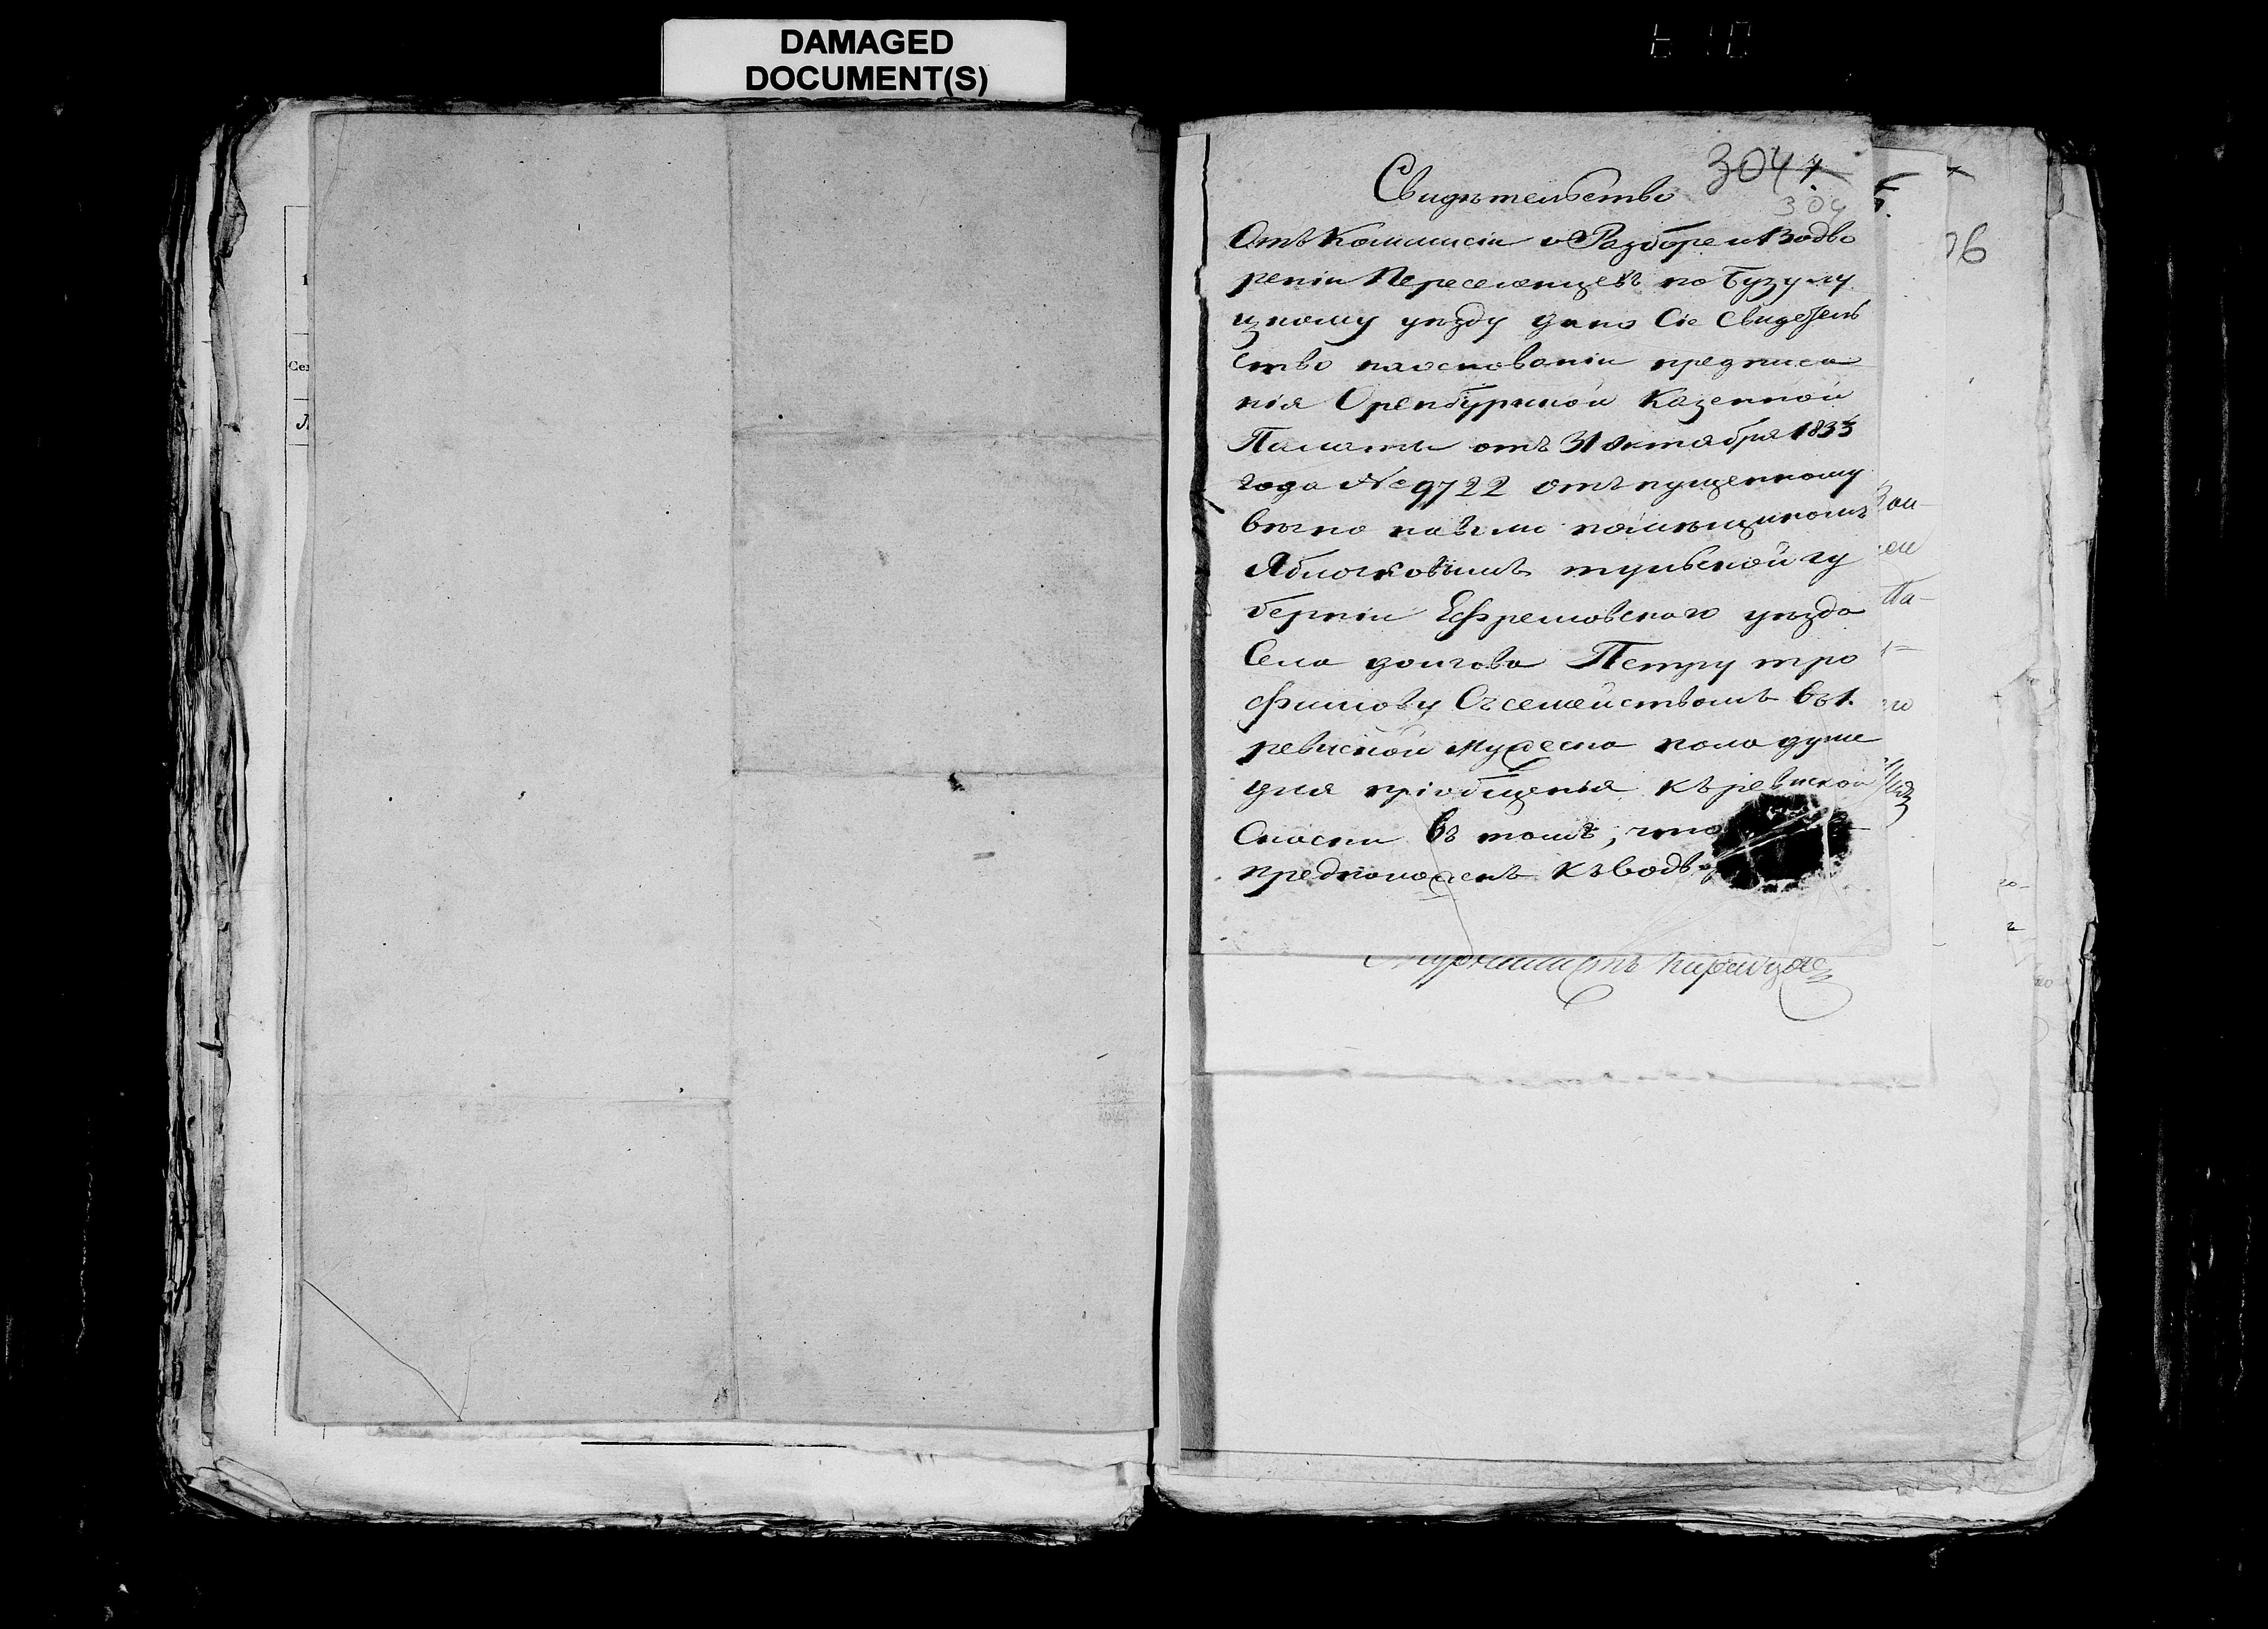 DAMAGED
DOCUMENT(S)
3041.
304
Свидѣтельство
Отъ Коммисiи о Разборе и Водво
ренiи Переселенцевъ по Бузулу
цкому уѣзду дано Сiе Свидетель
ство наоснованiи предписа
нiя Оренбургской Казенной
Палаты отъ 31 октября 1833
года № 9722 отъпущенному
вѣчно наволю помѣщикомъ
Яблочковымъ тульской гу
бернiи Ефремовскаго уѣзда
Села долгова Петру тро
фимову Съсемействомъ въ 1.
ревиской мужеска пола душе
для прiобщенiя къревиской
Сказки въ томъ, что
предположенъ къводв
06